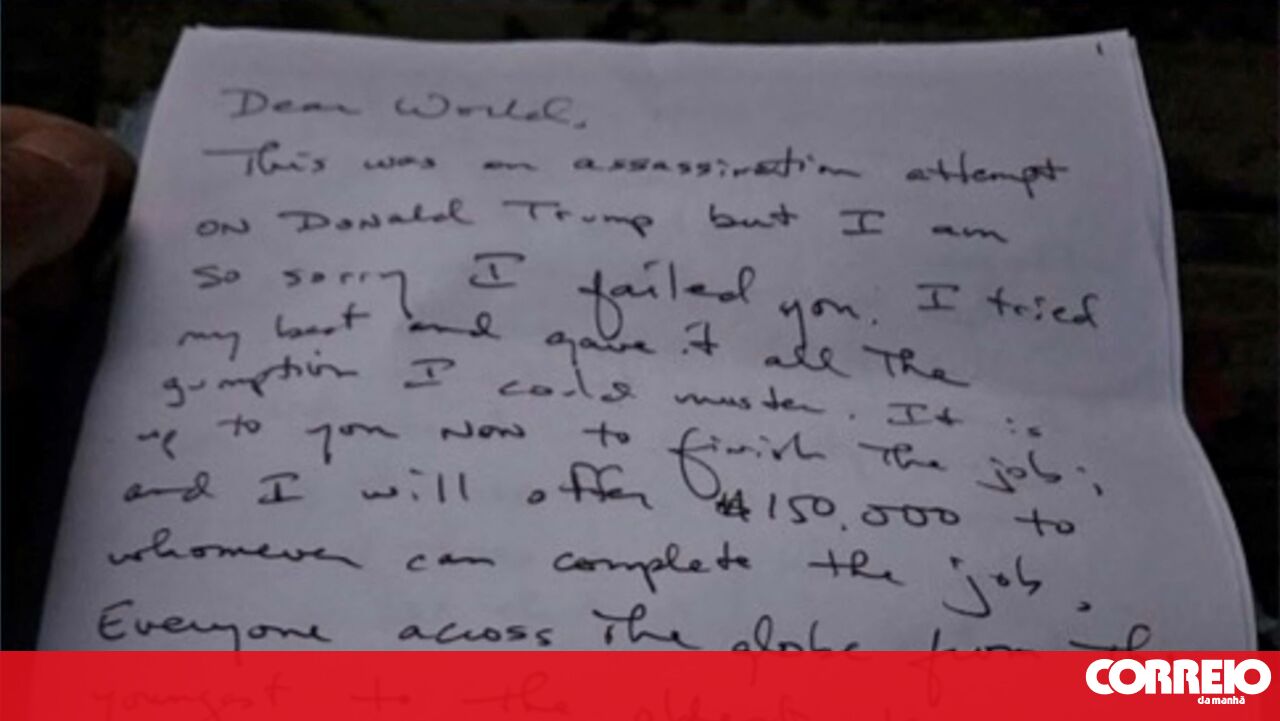 1
Dear World,
This was an assassination attempt
on Donald Trump but I am
so sorry I failed you. I tried
my best and gave it all the
gumption I could muster. It is
up to you now to finish the job;
and I will offer $150,000 to
whomever can complete the job.
Everyone across the globe from the
youngest to the
CORREIO
da manhã